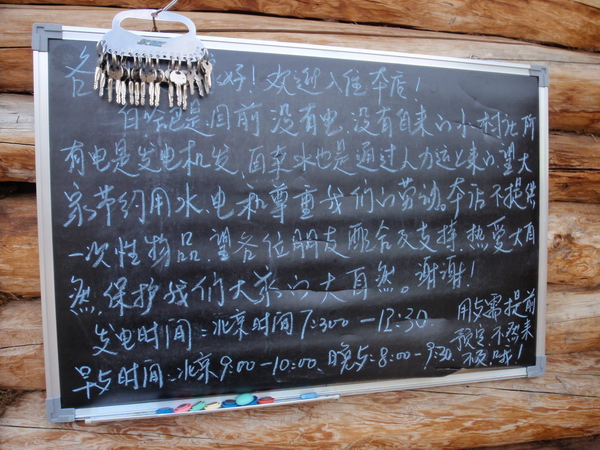 各 好！欢迎入住本店！
白哈巴是目前没有电、没有自来的小村庄所
有电是发电机发，自来水也是通过人力运上来的望大
家节约用水、电和尊重我们的劳动。本店不提供
一次性物品，望各位朋友配合及支持，热爱大自
然，保护我们大家的大自然。谢谢！
发电时间：北京时间7:30 — 12:30.
早点时间：北京9:00 — 10:00、晚点：8:00 — 9:30.
用点需提前
预定，不